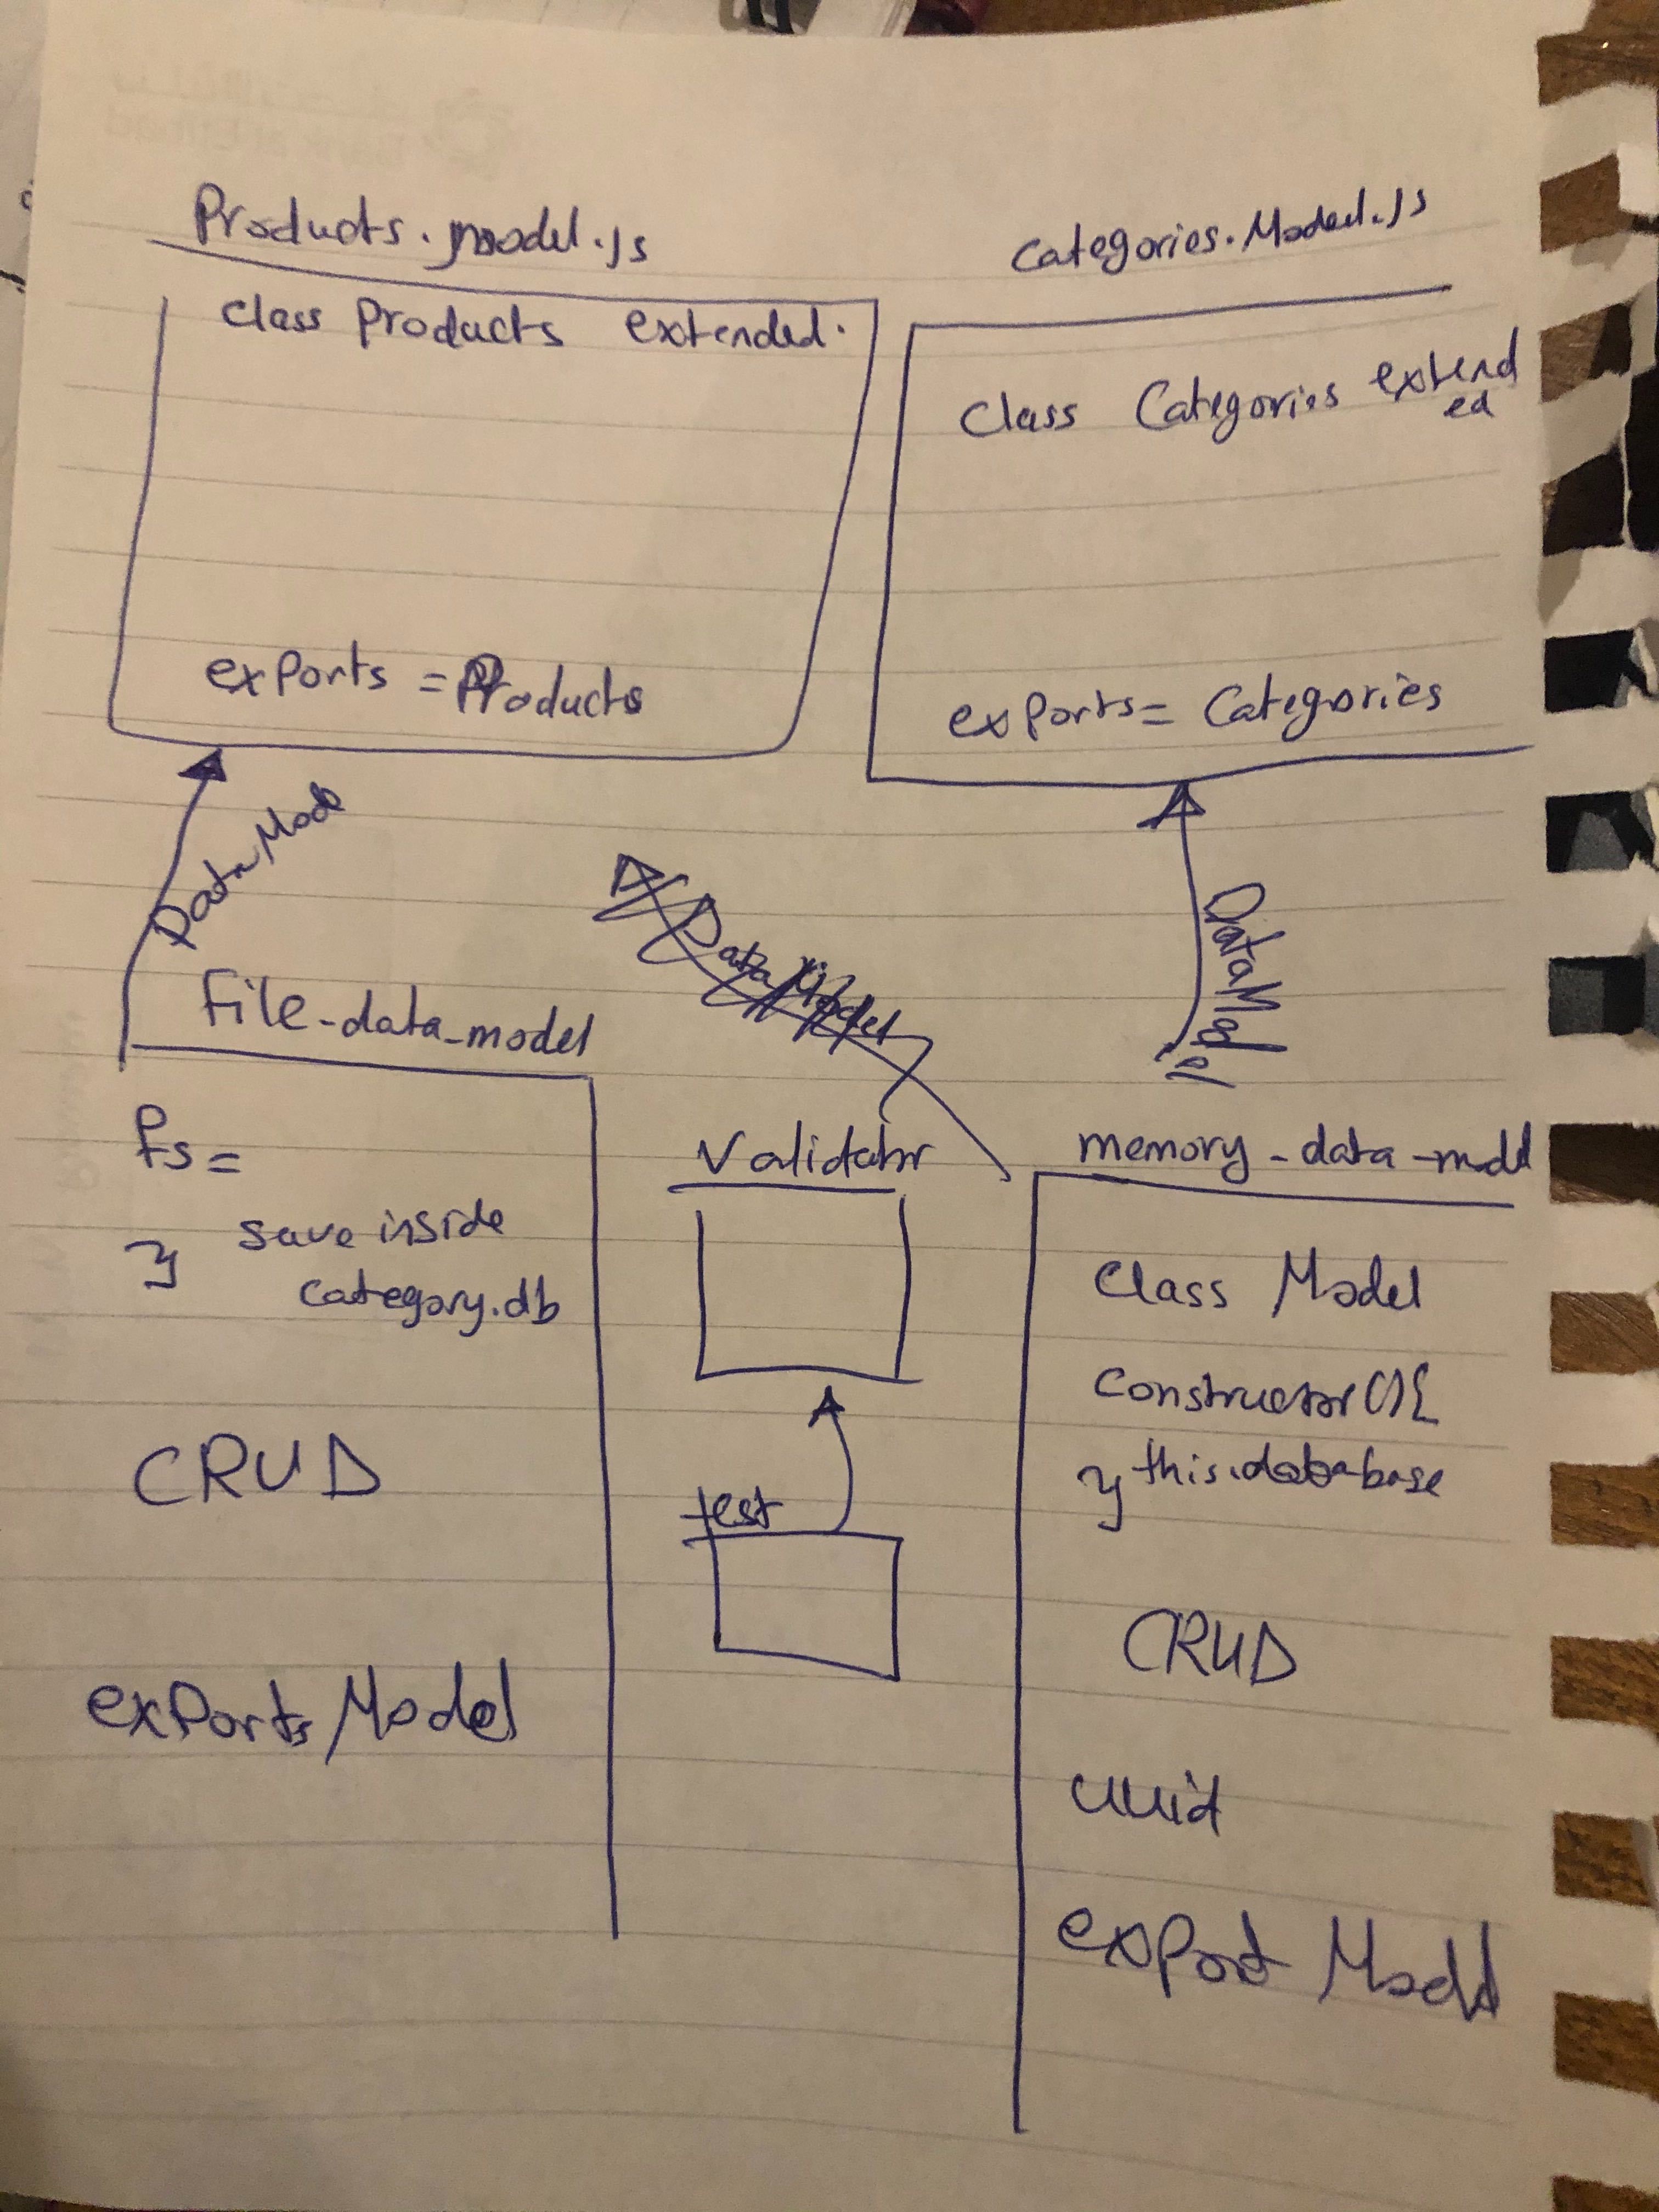 Products.model.js
class Products extended.
exports = Products
Categories.Model.js
Class Categories extend
ed
exports = Categories
DataModel
DataModel
File-data-model
fs =
} save inside
category.db
CRUD
exports Model
Validator
test
memory-data-model
Class Model
Constructor(){
} this.database
CRUD
uuid
export Model